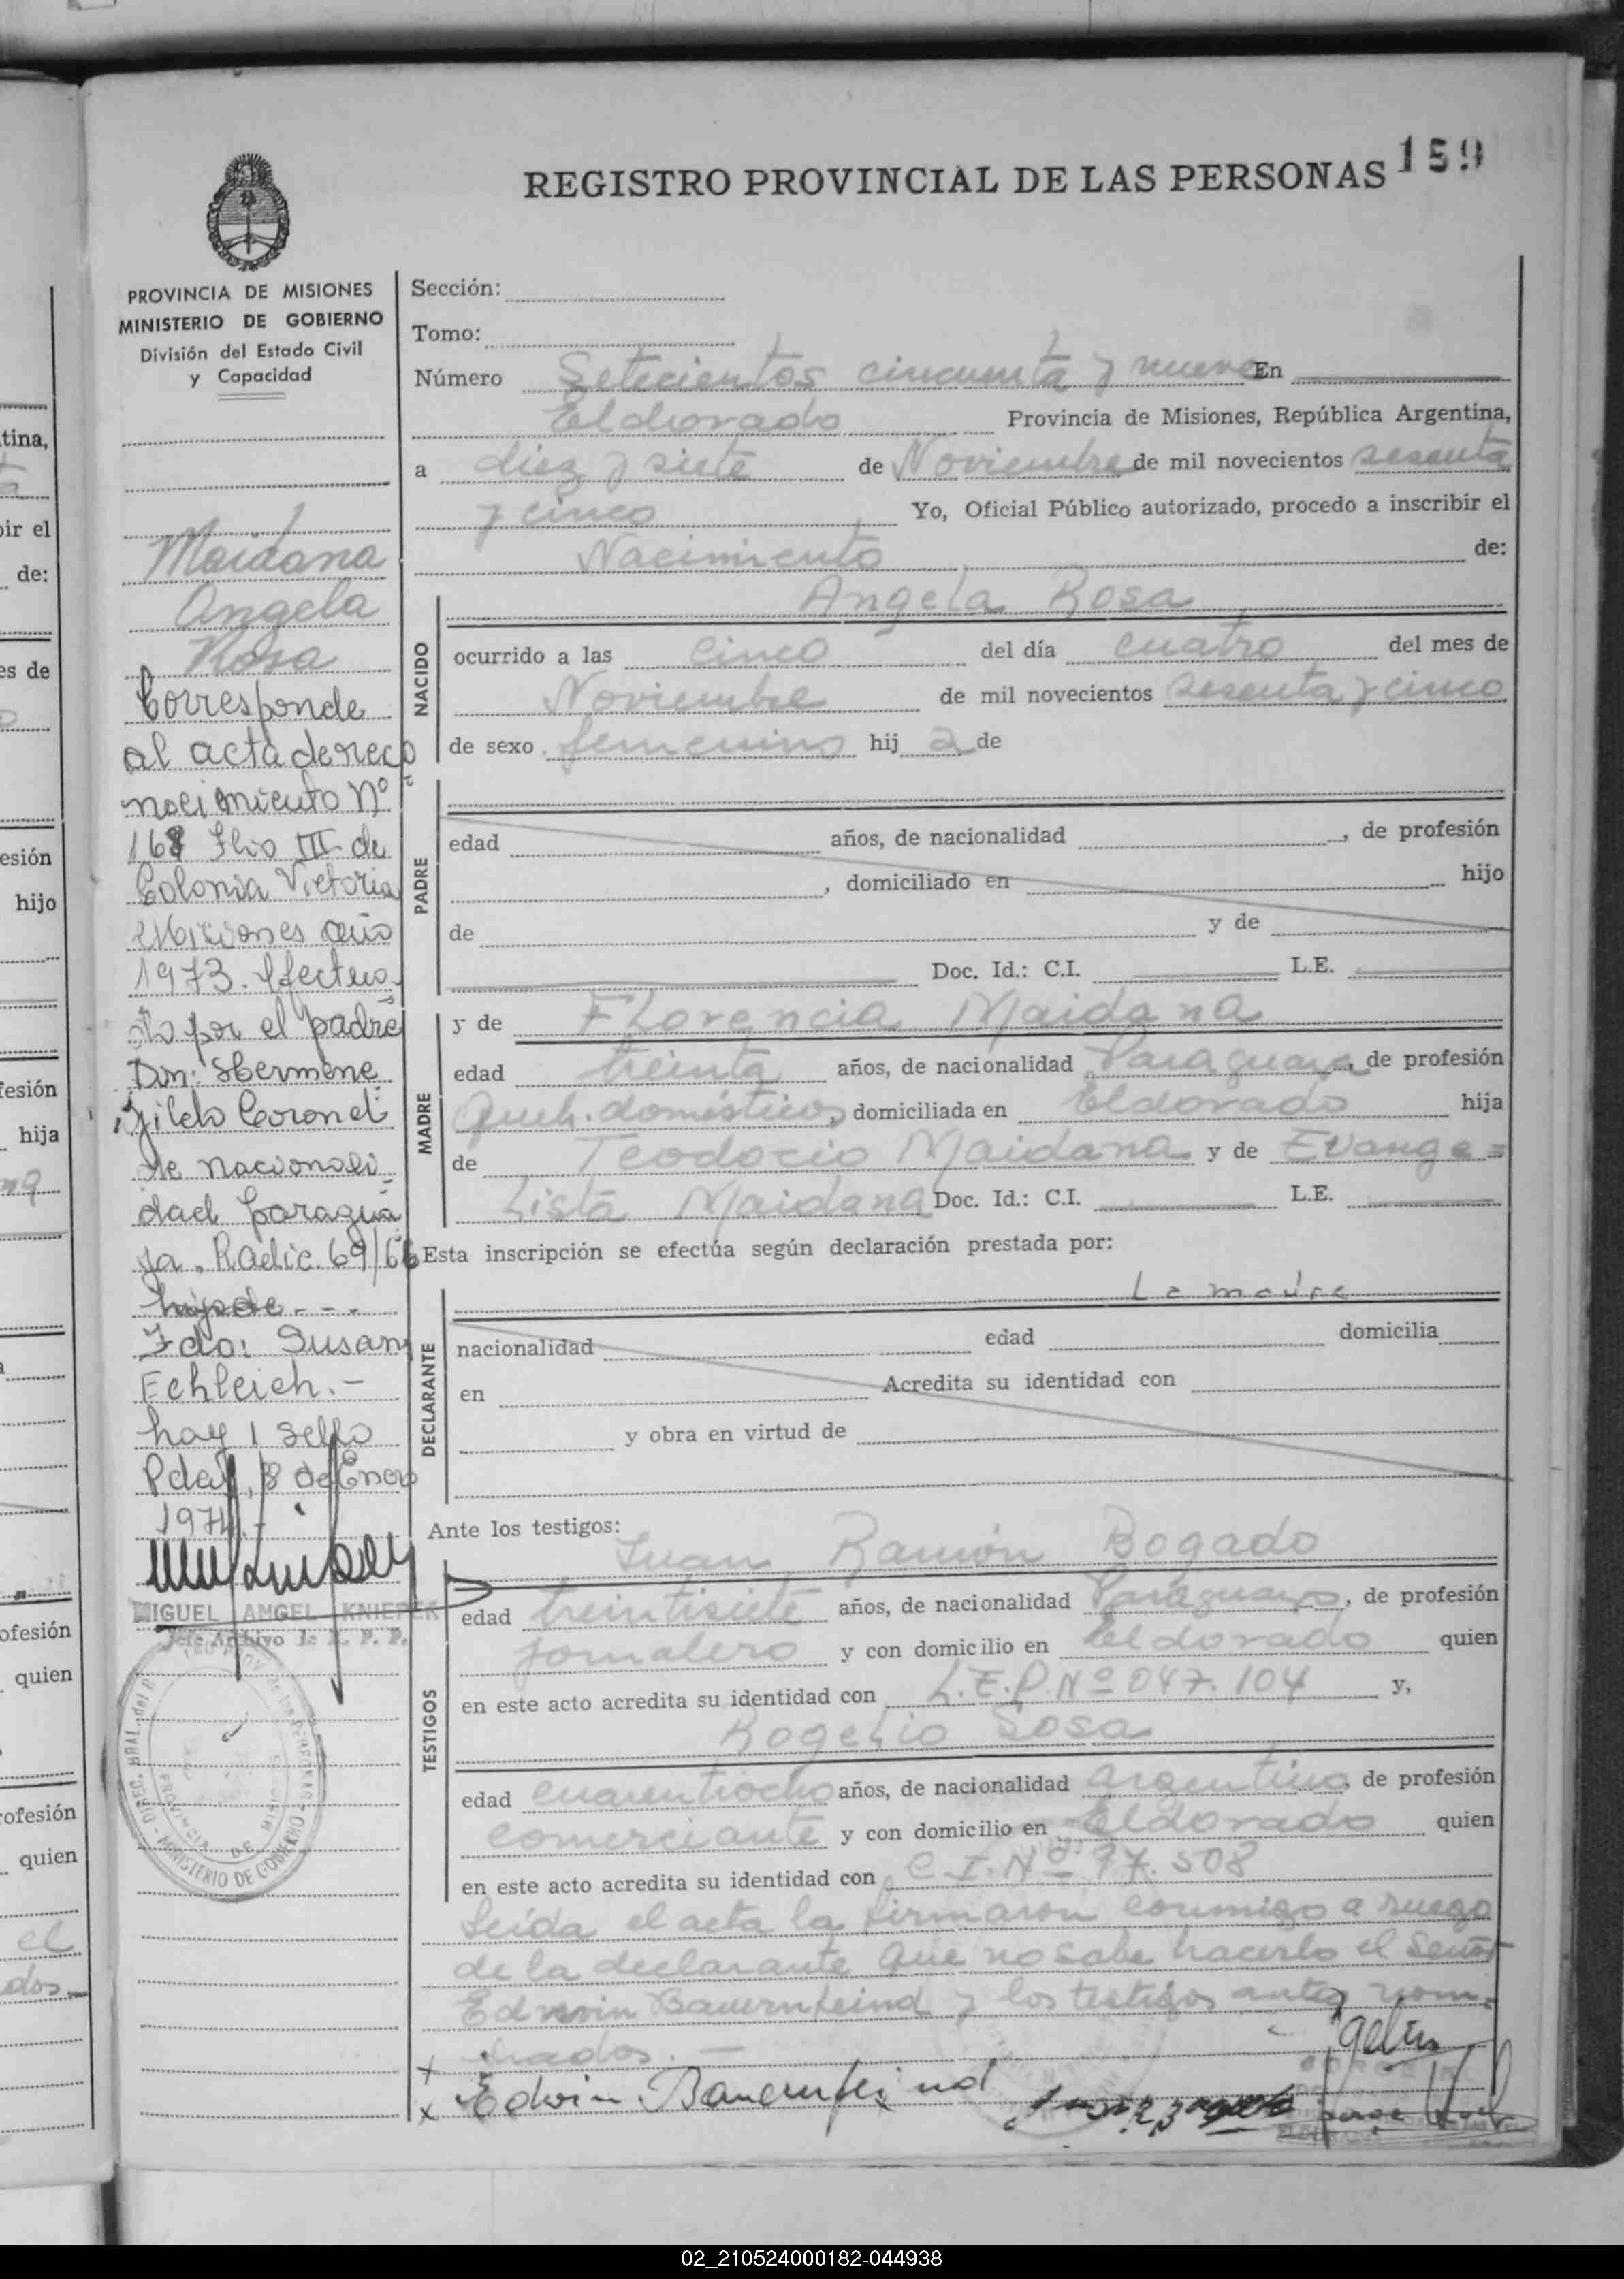 REGISTRO PROVINCIAL DE LAS PERSONAS 159
PROVINCIA DE MISIONES
MINISTERIO DE GOBIERNO
División del Estado Civil
y Capacidad
Maidana
Angela
Rosa
Corresponde
al acta de reco
nocimiento Nº
168 Flio III de
Colonia Victoria
Misiones año
1973. Efectua
do por el padre
Don: Hermene
jildo Coronel
de nacionali
dad paragua
ya, Radic. 69/66
hijo de - - -
Fdo: Susan
Echleich. -
hay 1 sello
Pdas, 8 de Enero
1974. -
MIGUEL ANGEL KNIEPEK
Jefe Archivo
MINISTERIO DE GOBIERNO
PROVINCIA DE MISIONES
Sección:
Tomo:
Número Setecientos cincuenta y nueve En
Eldorado Provincia de Misiones, República Argentina,
a diez y siete de Noviembre de mil novecientos sesenta
y cinco Yo, Oficial Público autorizado, procedo a inscribir el
Nacimiento de:
Angela Rosa
NACIDO
ocurrido a las cinco del día cuatro del mes de
Noviembre de mil novecientos sesenta y cinco
de sexo femenino hij a de
PADRE
edad años, de nacionalidad , de profesión
, domiciliado en hijo
de y de
Doc. Id.: C.I. L.E.
MADRE
y de Florencia Maidana
edad treinta años, de nacionalidad Paraguaya, de profesión
queh. domésticos, domiciliada en Eldorado hija
de Teodocio Maidana y de Evange=
lista Maidana Doc. Id.: C.I. L.E.
Esta inscripción se efectúa según declaración prestada por:
La madre
DECLARANTE
nacionalidad edad domicilia
en Acredita su identidad con
y obra en virtud de
Ante los testigos:
Juan Ramón Bogado
TESTIGOS
edad treintisiete años, de nacionalidad Paraguayo, de profesión
jornalero y con domicilio en Eldorado quien
en este acto acredita su identidad con L.E.P. Nº 047.104 y,
Rogelio Sosa
edad cuarentiocho años, de nacionalidad argentino, de profesión
comerciante y con domicilio en Eldorado quien
en este acto acredita su identidad con C.I. Nº 97.508
Leída el acta la firmaron conmigo a ruego
de la declarante que no sabe hacerlo el Señor
Edwin Bauernfeind y los testigos antes nom-
brados. -
Edwin Bauernfeind
tina,
bir el
de:
es de
esión
hijo
fesión
hija
ofesión
quien
rofesión
quien
el
dos
02_210524000182-044938